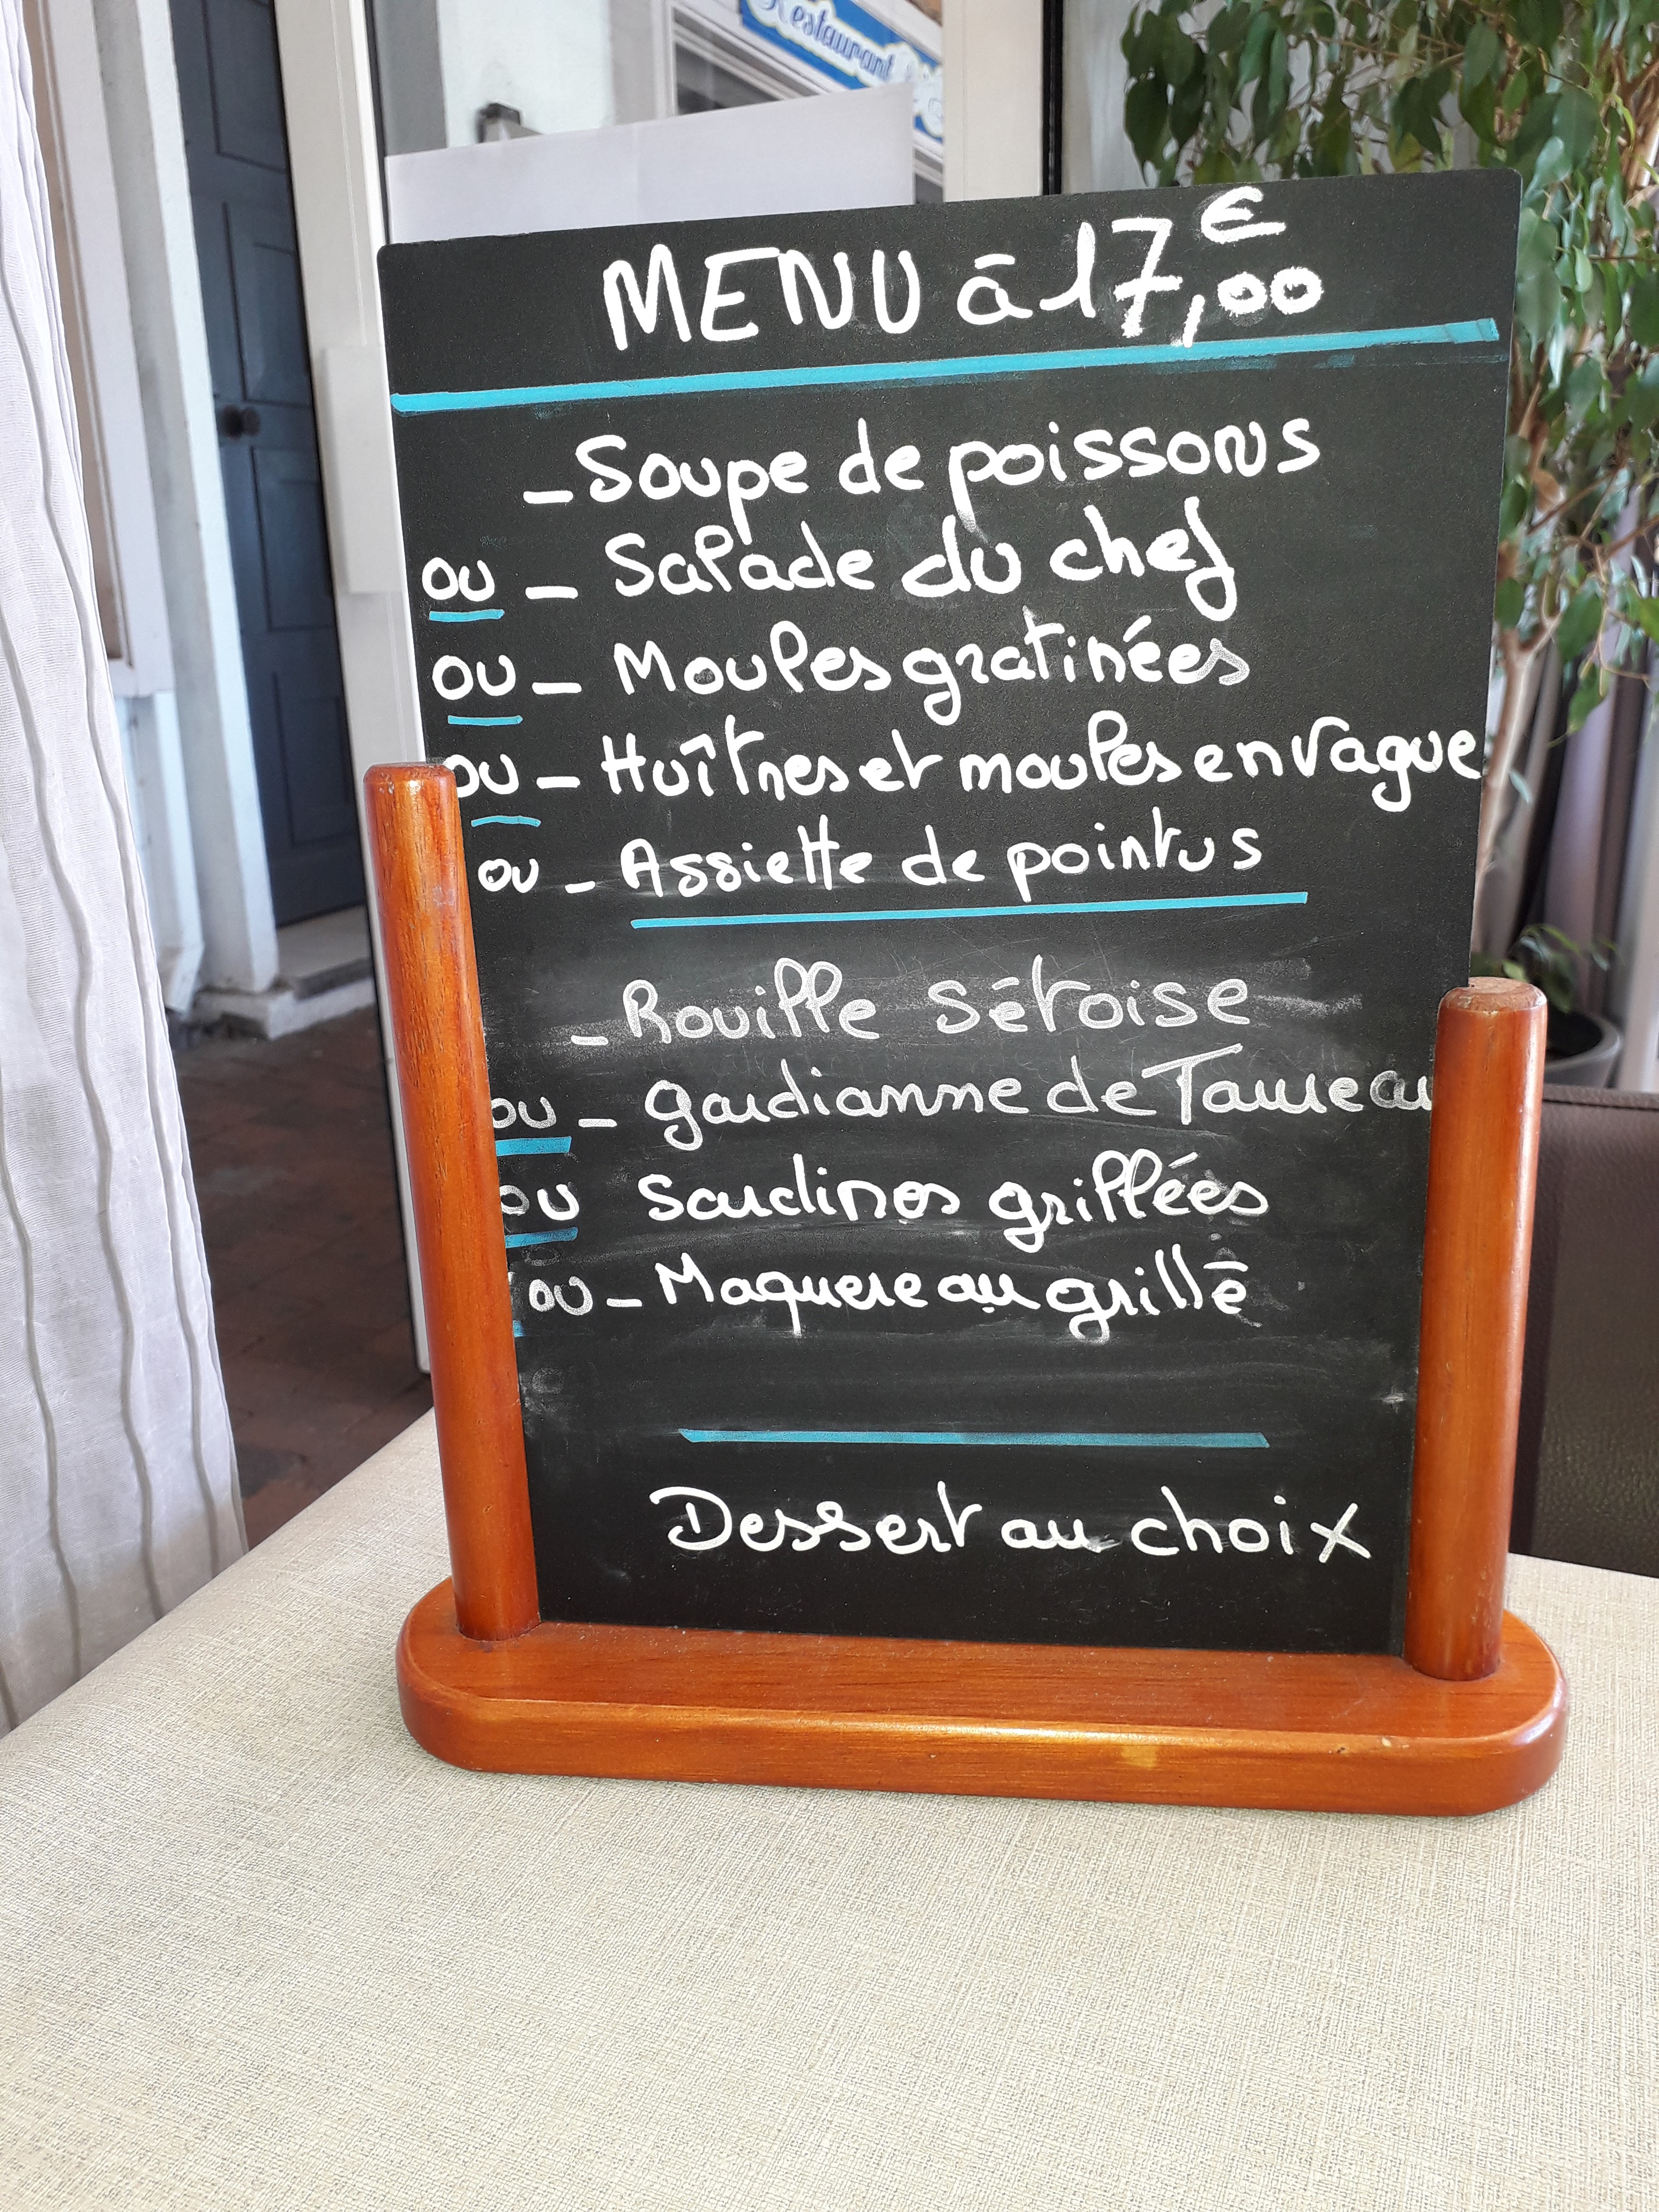 Restaurant
MENU à 17,00 €
- Soupe de poissons
ou - Salade du chef
ou - Moules gratinées
ou - Huîtres et moules en vague
ou - Assiette de pointus
- Rouille Sétoise
ou - gardianne de Taureau
ou Sardines grillées
ou - Maquereau grillé
Dessert au choix